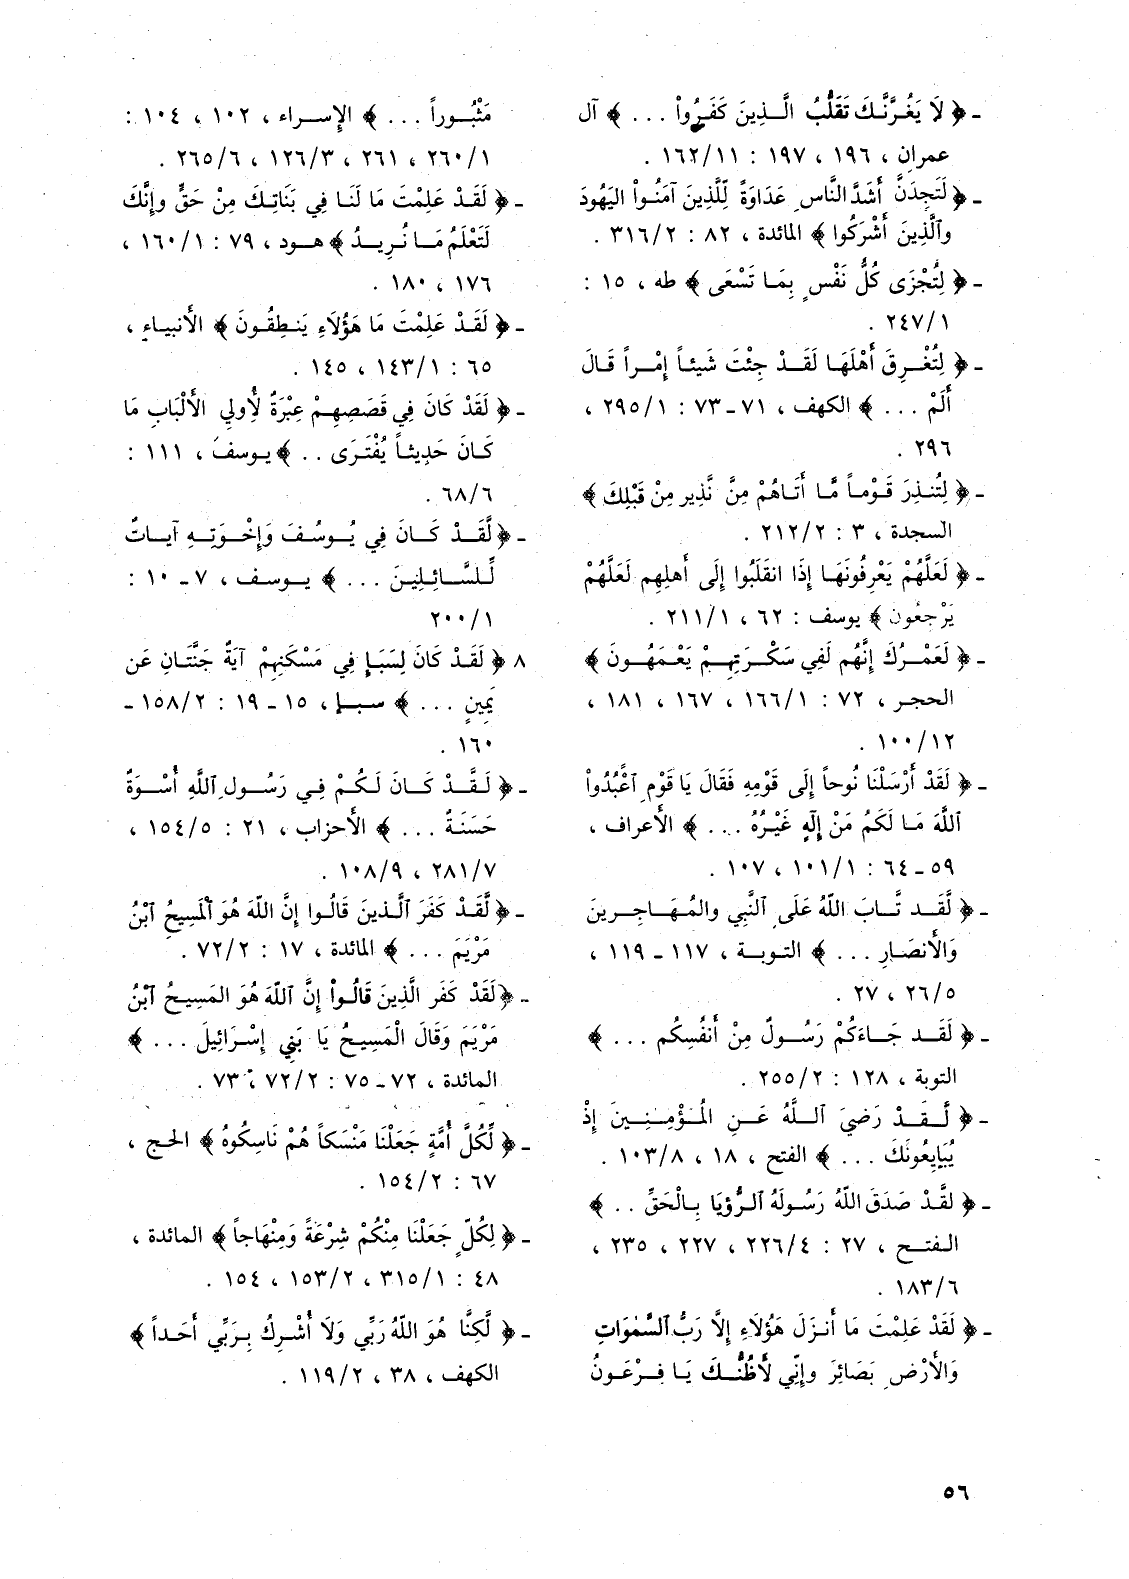 - ﴿ لَا يَغُرَّنَّكَ تَقَلُّبُ الَّذِينَ كَفَرُواْ ... ﴾ آل
عمران ، ١٩٦ ، ١٩٧ : ١٦٢/١١ .
- ﴿ لَتَجِدَنَّ أَشَدَّ النَّاسِ عَدَاوَةً لِّلَّذِينَ آمَنُواْ اليَهُودَ
وَٱلَّذِينَ أَشْرَكُوا ﴾ المائدة ، ٨٢ : ٣١٦/٢ .
- ﴿ لِتُجْزَى كُلُّ نَفْسٍ بِمَا تَسْعَى ﴾ طه ، ١٥ :
٢٤٧/١ .
- ﴿ لِتُغْرِقَ أَهْلَهَا لَقَدْ جِئْتَ شَيئاً إِمْراً قَالَ
أَلَمْ ... ﴾ الكهف ، ٧١ - ٧٣ : ٢٩٥/١ ،
٢٩٦ .
- ﴿ لِتُنذِرَ قَوْماً مَّا أَتَاهُمْ مِنَّ نَّذِير مِنْ قَبْلِكَ ﴾
السجدة ، ٣ : ٢١٢/٢ .
- ﴿ لَعَلَّهُمْ يَعْرِفُونَهَا إِذَا انقَلَبُوا إِلَى أَهلِهِم لَعَلَّهُمْ
يَرْجِعُون ﴾ يوسف : ٦٢ ، ٢١١/١ .
- ﴿ لَعَمْرُكَ إِنَّهُم لَفِي سَكْرَتِهِمْ يَعْمَهُونَ ﴾
الحجر ، ٧٢ : ١٦٦/١ ، ١٦٧ ، ١٨١ ،
١٠٠/١٢ .
- ﴿ لَقَدْ أَرْسَلْنَا نُوحاً إِلَى قَوْمِهِ فَقَالَ يَا قَوْمِ ٱعْبُدُواْ
ٱللَّهَ مَا لَكُمُ مَنْ إِلَهٍ غَيْرُهُ ... ﴾ الأعراف ،
٥٩ - ٦٤ : ١٠١/١ ، ١٠٧ .
- ﴿ لَّقَد تَّابَ اللَّهُ عَلَى ٱلنَّبِي والمُهَاجِرِينَ
وَالأَنصَارِ ... ﴾ التوبة ، ١١٧ - ١١٩ ،
٢٦/٥ ، ٢٧ .
- ﴿ لَقَد جَاءَكُمْ رَسُولٌ مِنْ أَنفُسِكُم ... ﴾
التوبة ، ١٢٨ : ٢٥٥/٢ .
- ﴿ لَّقَدْ رَضِيَ ٱللَّهُ عَنِ المُؤْمِنِينَ إِذْ
يُبَايِعُونَكَ ... ﴾ الفتح ، ١٨ ، ١٠٣/٨ .
- ﴿ لقَّدْ صَدَقَ اللَّهُ رَسُولَهُ ٱلرُّؤيَا بِالْحَقِّ .. ﴾
الفتح ، ٢٧ : ٢٢٦/٤ ، ٢٢٧ ، ٢٣٥ ،
١٨٣/٦ .
- ﴿ لَقَدْ عَلِمْتَ مَا أَنزَلَ هَؤُلَاءِ إِلَّا رَبُّ ٱلسَّمٰوَاتِ
وَالأَرْضِ بَصَائِرَ وإِنِّي لَأَظُنُّكَ يَا فِرْعَونُ
مَثْبُوراً ... ﴾ الإسراء ، ١٠٢ ، ١٠٤ :
٢٦٠/١ ، ٢٦١ ، ١٢٦/٣ ، ٢٦٥/٦ .
- ﴿ لَقَدْ عَلِمْتَ مَا لَنَا فِي بَنَاتِكَ مِنْ حَقٍّ وإِنَّكَ
لَتَعْلَمُ مَا نُرِيدُ ﴾ هود ، ٧٩ : ١٦٠/١ ،
١٧٦ ، ١٨٠ .
- ﴿ لَقَدْ عَلِمْتَ مَا هَؤُلَاءِ يَنطِقُونَ ﴾ الأنبياء ،
٦٥ : ١٤٣/١ ، ١٤٥ .
- ﴿ لَقَدْ كَانَ فِي قَصَصِهِمْ عِبْرَةٌ لِأُولي الأَلْبَابِ مَا
كَانَ حَدِيثاً يُفْتَرَى .. ﴾ يوسف ، ١١١ :
٦٨/٦ .
- ﴿ لَّقَدْ كَانَ فِي يُوسُفَ وَإِخْوَتِهِ آيَاتٌ
لِّلسَّائِلِينَ ... ﴾ يوسف ، ٧ - ١٠ :
٢٠٠/١
٨ ﴿ لَقَدْ كَانَ لِسَبَإٍ فِي مَسْكَنِهِمْ آيَةٌ جَنَّتَانِ عَن
يَمِينٍ ... ﴾ سبإ ، ١٥ - ١٩ : ١٥٨/٢ -
١٦٠ .
- ﴿ لَقَّدْ كَانَ لَكُمْ فِي رَسُولِ ٱللَّهِ أُسْوَةٌ
حَسَنَةٌ ... ﴾ الأحزاب ، ٢١ : ١٥٤/٥ ،
٢٨١/٧ ، ١٠٨/٩ .
- ﴿ لَّقَدْ كَفَرَ ٱلَّذِينَ قَالُوا إِنَّ اللَّهَ هُوَ ٱلْمَسِيحُ ٱبْنُ
مَرْيَمَ ... ﴾ المائدة ، ١٧ : ٧٢/٢ .
- ﴿ لَقَدْ كَفَر الَّذِينَ قَالُواْ إِنَّ ٱللَّهَ هُوَ المَسِيحُ ٱبْنُ
مَرْيَمَ وَقَالَ الْمَسِيحُ يَا بَنِي إِسْرَائِيلَ ... ﴾
المائدة ، ٧٢ - ٧٥ : ٧٢/٢ ، ٧٣ .
- ﴿ لِّكُلِّ أُمَّةٍ جَعَلْنَا مَنْسَكاً هُمْ نَاسِكُوهُ ﴾ الحج ،
٦٧ : ١٥٤/٢ .
- ﴿ لِكُلٍّ جَعَلْنَا مِنْكُمْ شِرْعَةً وَمِنْهَاجاً ﴾ المائدة ،
٤٨ : ٣١٥/١ ، ١٥٣/٢ ، ١٥٤ .
- ﴿ لَّكِنَّا هُوَ اللَّهُ رَبِّي وَلَا أُشْرِكُ بِرَبِّي أَحَداً ﴾
الكهف ، ٣٨ ، ١١٩/٢ .
٥٦